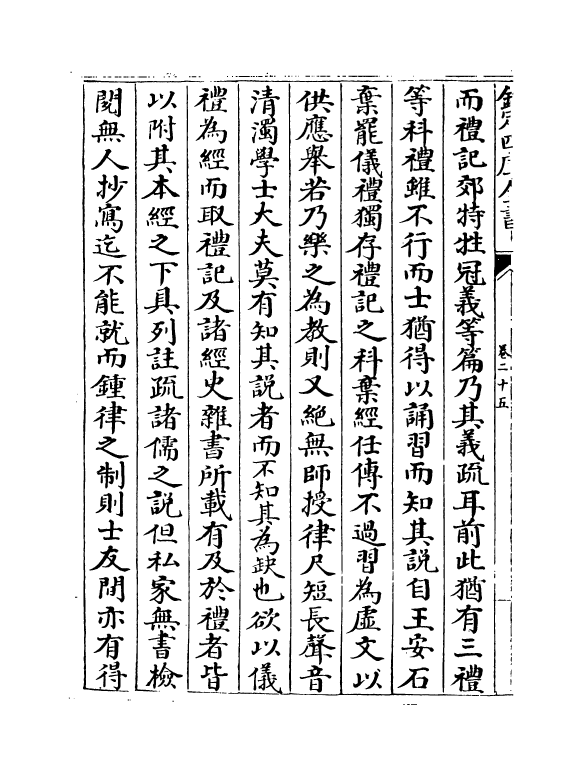 欽定四庫全書
卷二十五
而禮記郊特牲冠義等篇乃其義疏耳前此猶有三禮
等科禮雖不行而士猶得以誦習而知其說自王安石
棄罷儀禮獨存禮記之科棄經任傳不過習為虛文以
供應舉若乃樂之為教則又絕無師授律尺短長聲音
清濁學士大夫莫有知其說者而不知其為缺也欲以儀
禮為經而取禮記及諸經史雜書所載有及於禮者皆
以附其本經之下具列註疏諸儒之說但私家無書檢
閱無人抄寫迄不能就而鍾律之制則士友間亦有得